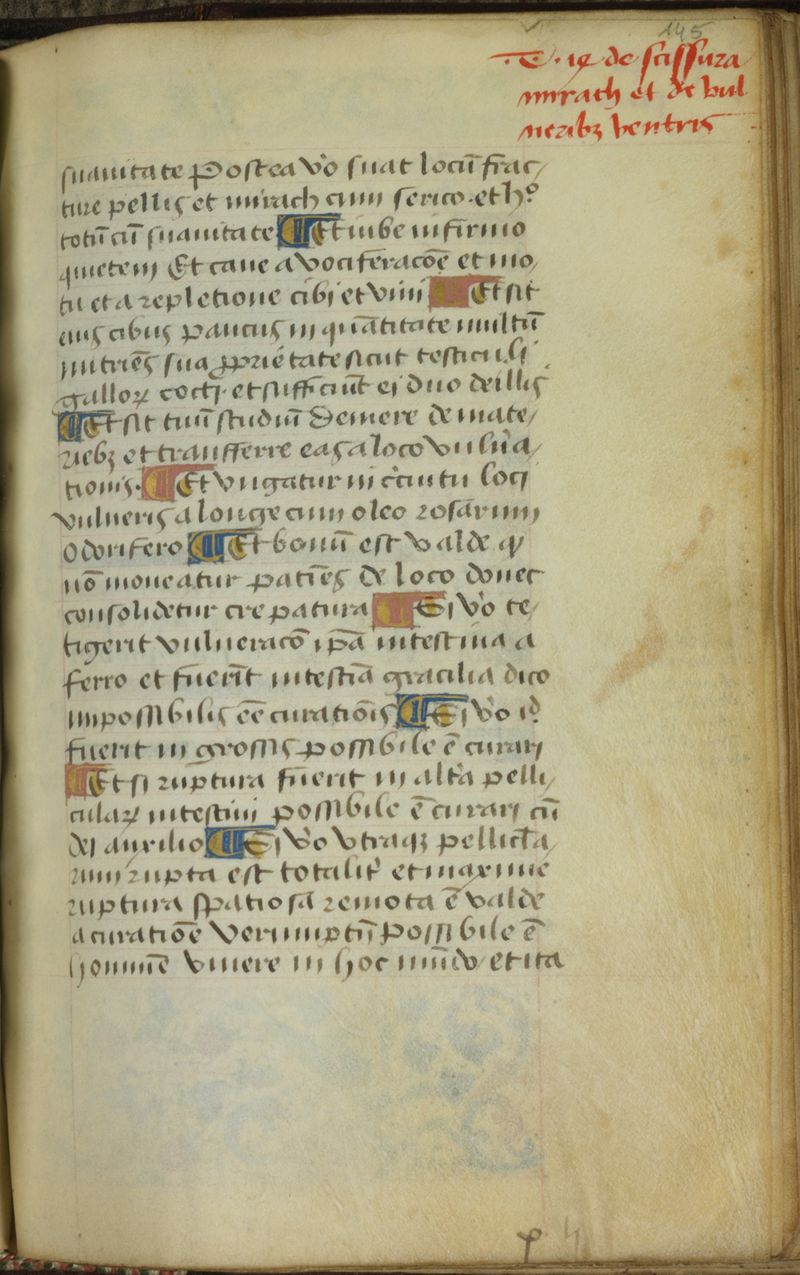 145
·C· 14 de scissura
mirach et de vul
neribꝫ ventris
suauitate Postea vo᷒ suat locū frac/
ture pellis et mirach cum serico · et h°
totū cū suauitate ¶ Et iube infirmo
quietem Et caue a vociferacōe et mo/
tu et a repletione cibi et vini ¶ Et sit
eius cibus paucus in quātitate multū
nutriēs sua ꝓprietate sicut testiculi
galloꝝ cocti · et sufficiūt ei duo de illis
¶ Et sit tuū studiū Demere de mate/
riebꝫ et transferre eas a loco vulnera/
tionis · ¶ Et vngatur in circuitu loci
vulneris a longe cum oleo rosarum
odorifero ¶ Et bonū est valde qͥ
nō moueatur patiēs de loco donec
consolidetur crepatura ¶ Si vo te/
tigerit vulneracō ipā intestina a
ferro et fuerīt intestīa gracilia dico
impossibilis eē curatiōis ¶ Si vo id
fuerit in grossis possibile ē curari
¶ Et si ruptura fuerit in altera pelli/
culaꝝ intestini possibile ē curari cū
dei auxilio ¶ Si vo vtraqꝫ pellicula/
rum rupta est totalitͥ et maxime
ruptura spatiosa remota ē valde
a curatiōe Verumptn̄ possibile ē
hominē viuere in hoc mūdo et ita